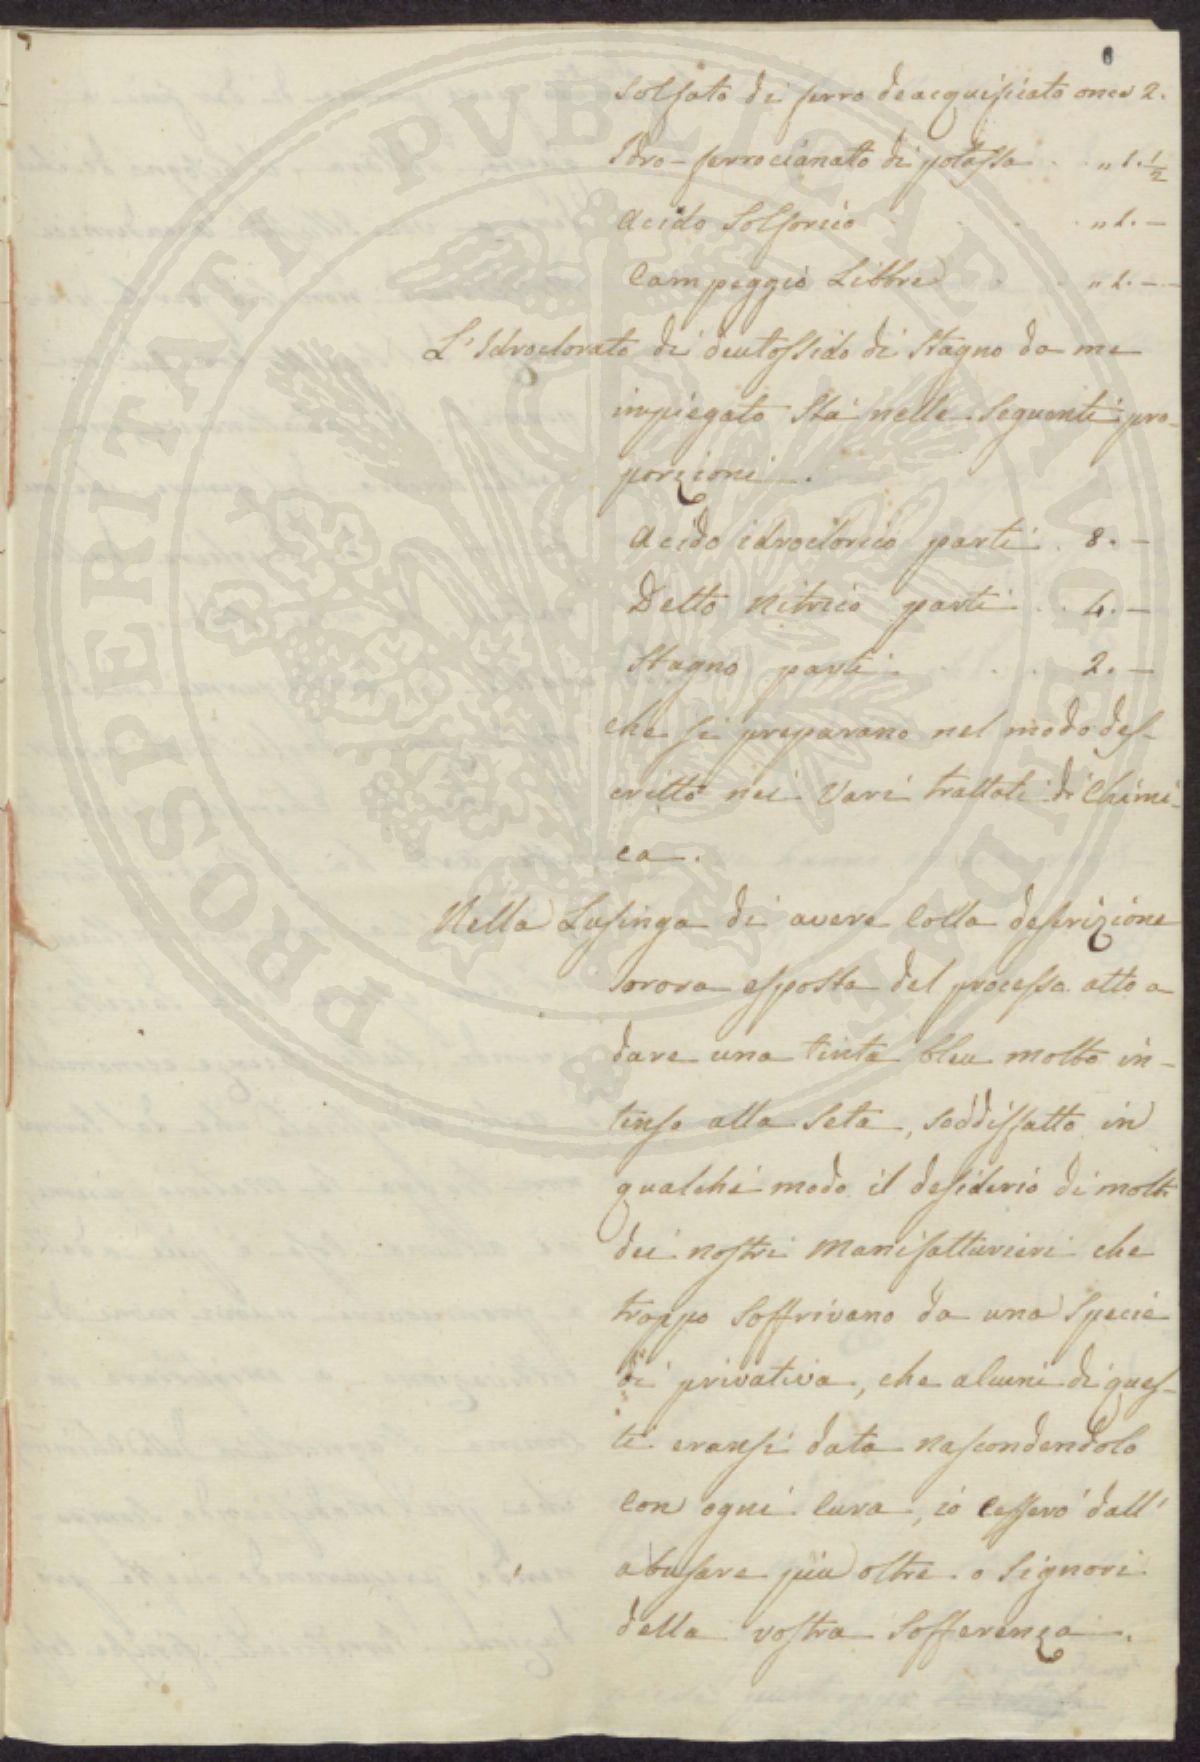 6
Solfato di ferro deacquificato once 2.
Idro-ferrocianato di potassa . „ 1. 1/2
Acido Solforico . . . „ 1. —
Campeggio Libbre . . „ 1. —
L'Idroclorato di deutossido di Stagno da me
impiegato Sta nelle Seguenti pro-
porzioni.
Acido idroclorico parti . 8. —
Detto Nitrico parti . . 4. —
Stagno parti . . . 2. —
che si preparano nel modo des-
critto nei Vari trattati di Chimi-
ca.
Nella Lusinga di avere Colla descrizione
Sovra esposta del processo atto a
dare una tinta bleu molto in-
tenso alla Seta, soddisfatto in
qualche modo il desiderio di molti
dei nostri Manifatturieri che
troppo Soffrivano da una Specie
di privativa, che alcuni di ques-
ti eransi data nascondendolo
Con ogni Cura, io Cesserò dall'
abusare più oltre o Signori
della vostra Sofferenza.
PROSPERITATI PVBLICAE AVGENDAE